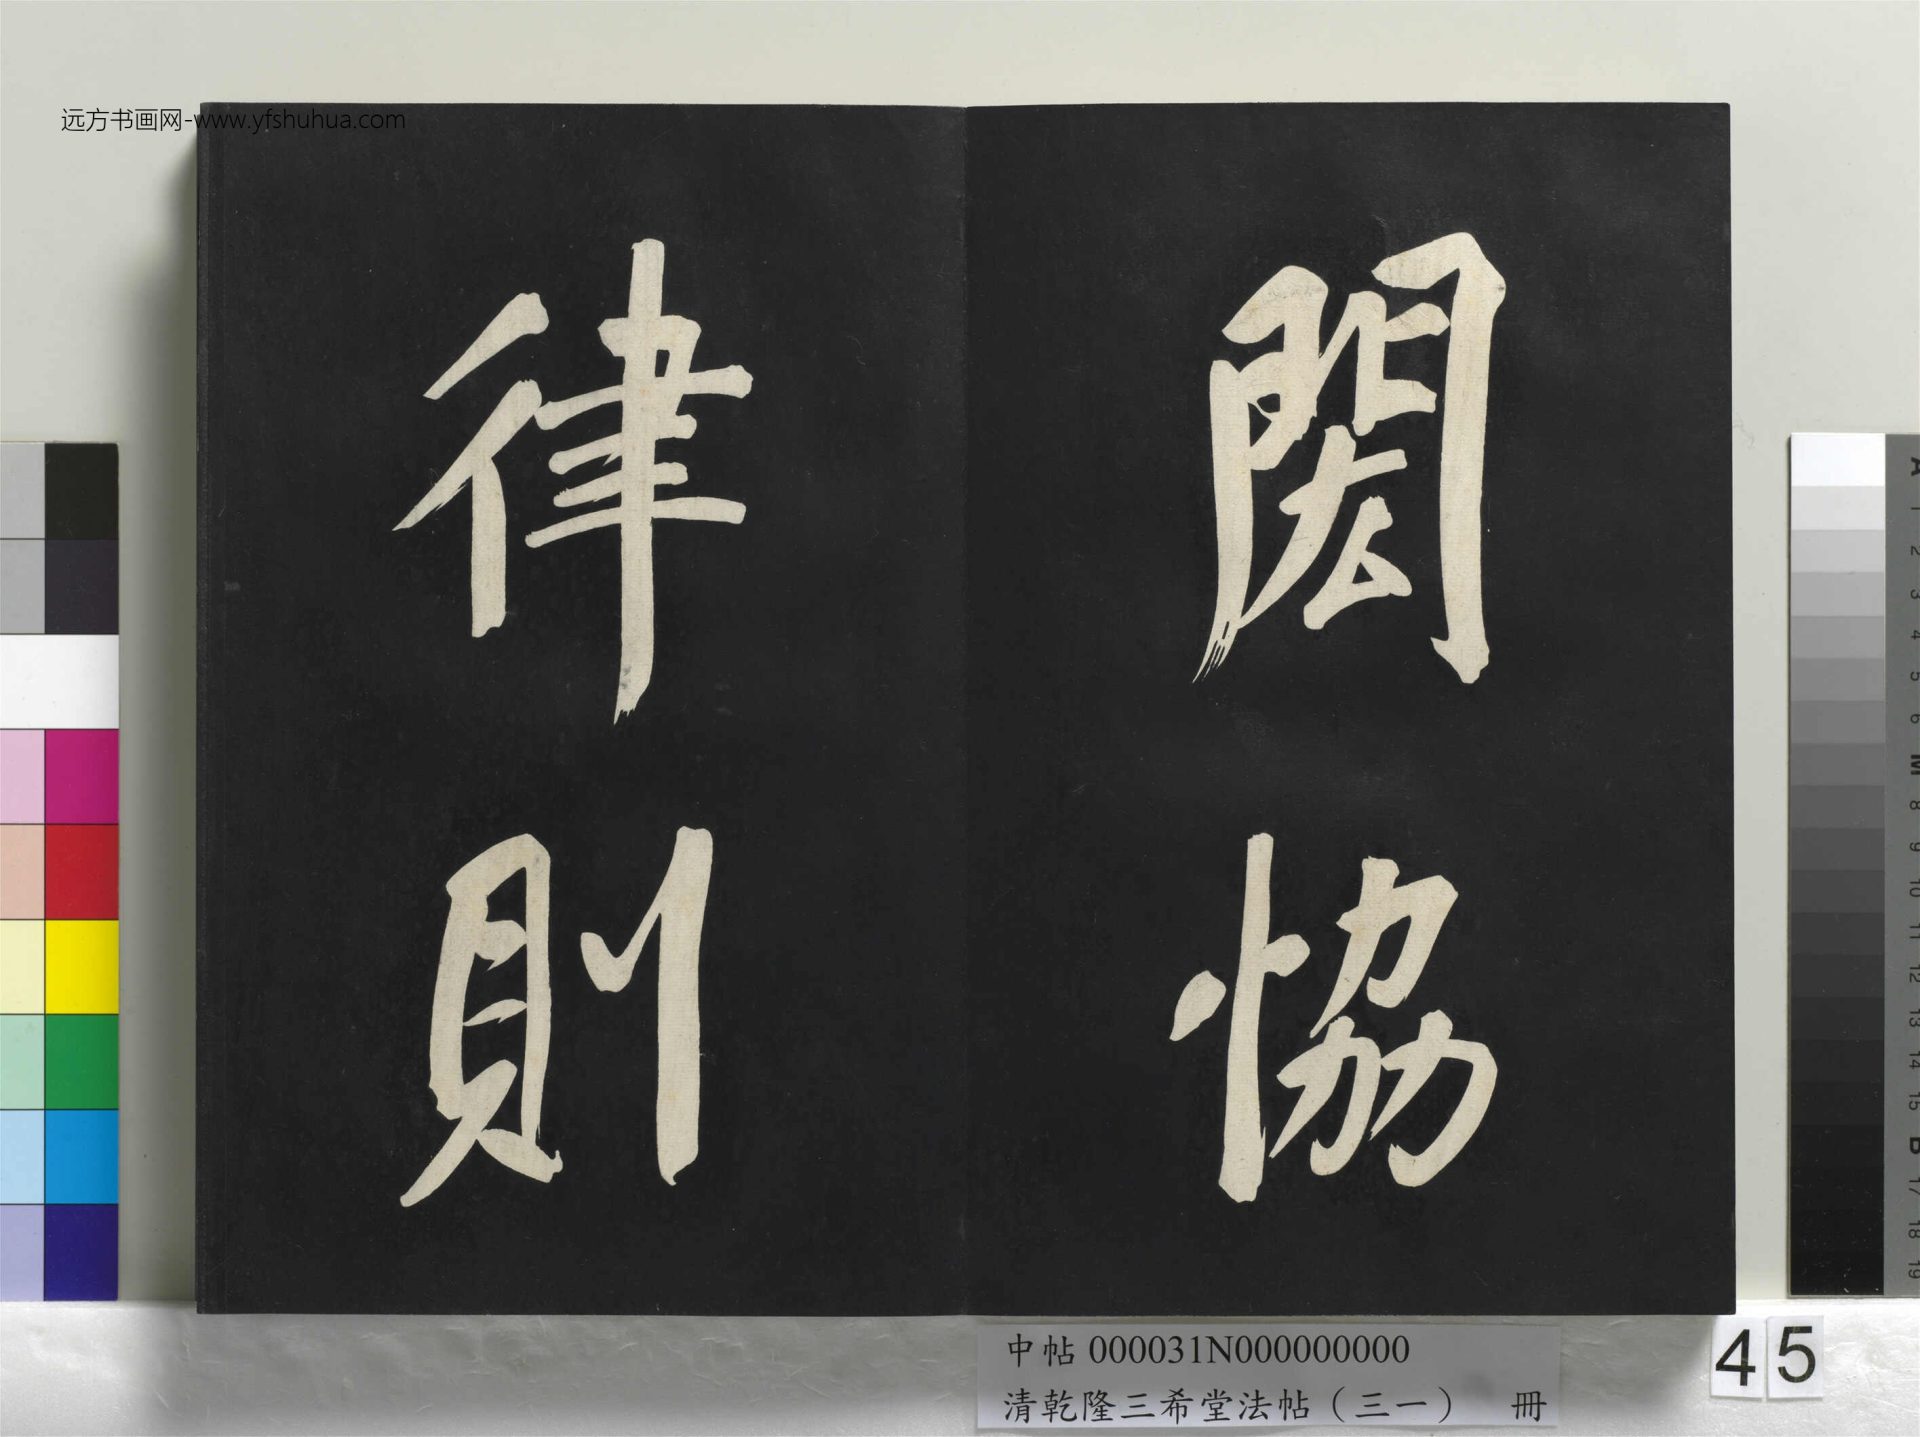 远方书画网-www.yfshuhua.com
閎
協
律
則
中帖 000031N000000000
清乾隆三希堂法帖（三一） 冊
45
A
1
2
3
4
5
6
M
8
9
10
11
12
13
14
15
B
17
18
19